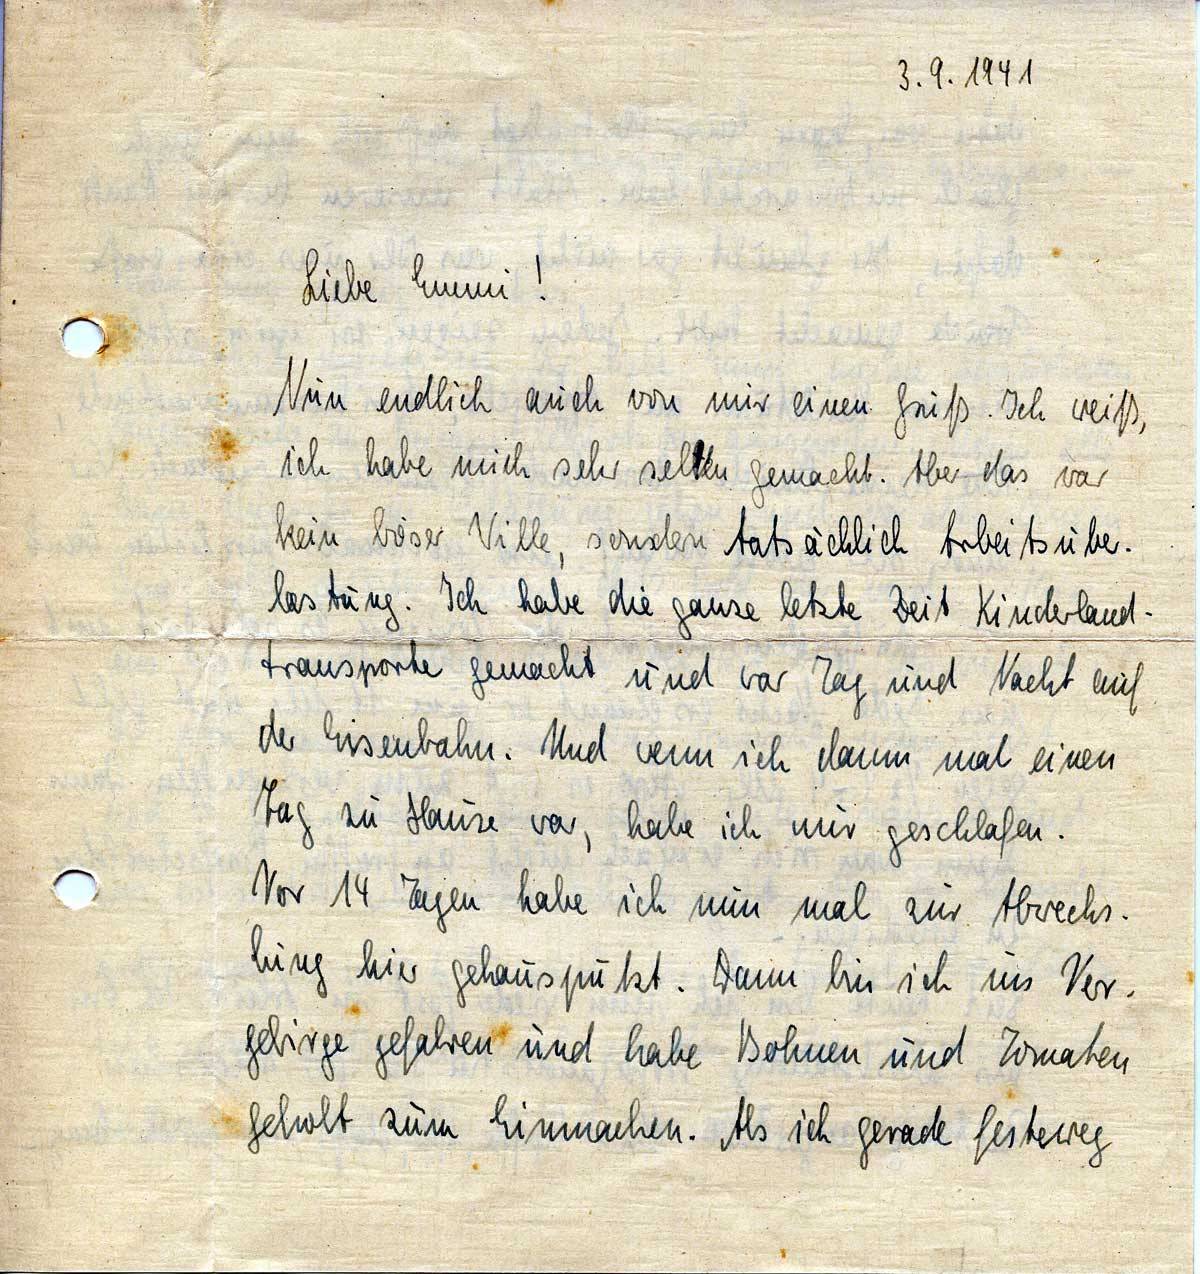 3.9.1941
Liebe Emmi!
Nun endlich auch von mir einen Gruß. Ich weiß,
ich habe mich sehr selten gemacht. Aber das war
kein böser Wille, sondern tatsächlich Arbeitsüber-
lastung. Ich habe die ganze letzte Zeit Kinderland-
transporte gemacht und war Tag und Nacht auf
der Eisenbahn. Und wenn ich dann mal einen
Tag zu Hause war, habe ich nur geschlafen.
Vor 14 Tagen habe ich nun mal zur Abwechs-
lung hier gehausputzt. Dann bin ich ins Vor-
gebirge gefahren und habe Bohnen und Tomaten
geholt zum Einmachen. Als ich gerade festeweg